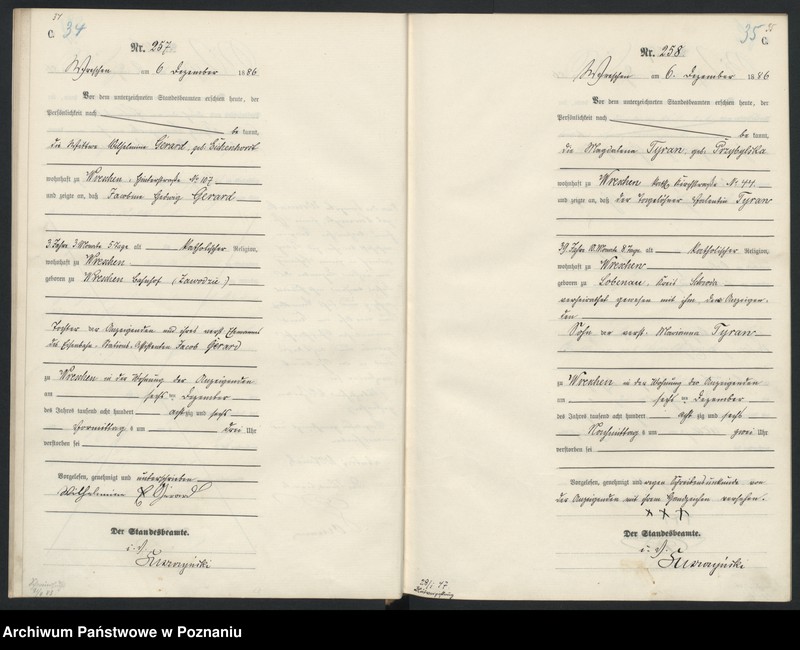 34
C. 34
Nr. 257
Wreschen am 6 Dezember 1886
Vor dem unterzeichneten Standesbeamten erschien heute, der
Persönlichkeit nach
be kannt,
die Wilhelmine Gerard geb.
wohnhaft zu Wreschen, № 107
und zeigte an, daß Jacobine Hedwig Gerard
3 Jahre 3 Monate 5 Tage alt katholischer Religion,
wohnhaft zu Wreschen
geboren zu Wreschen Bahnhof (Zawodzie)
Tochter der Anzeigenden und ihres verst. Ehemannes
des Eisenbahn-Stations-Assistenten Jacob Gerard
zu Wreschen in der Wohnung der Anzeigenden
am sechs ten Dezember
des Jahres tausend acht hundert achtzig und sechs
Vormittag s um drei Uhr
verstorben sei
Vorgelesen, genehmigt und unterschrieben
Wilhelmine Gerard
Der Standesbeamte.
i. V.
35
35 C.
Nr. 258
Wreschen am 6. Dezember 1886
Vor dem unterzeichneten Standesbeamten erschien heute, der
Persönlichkeit nach
be kannt,
die Magdalena Tyran geb. Przybylska
wohnhaft zu Wreschen № 44
und zeigte an, daß der Tagelöhner Valentin Tyran
39 Jahre 10 Monate 8 Tage alt katholischer Religion,
wohnhaft zu Wreschen
geboren zu Lobenau, Kreis Schroda
verheirathet gewesen mit ihr der Anzeigen-
den
Sohn der verst. Marianna Tyran
zu Wreschen in der Wohnung der Anzeigenden
am sechs ten Dezember
des Jahres tausend acht hundert acht zig und sechs
Nachmittag s um zwei Uhr
verstorben sei
Vorgelesen, genehmigt und wegen Schreibensunkunde von
der Anzeigenden mit ihrem Handzeichen versehen.
+ + +
Der Standesbeamte.
i. V.
Archiwum Państwowe w Poznaniu